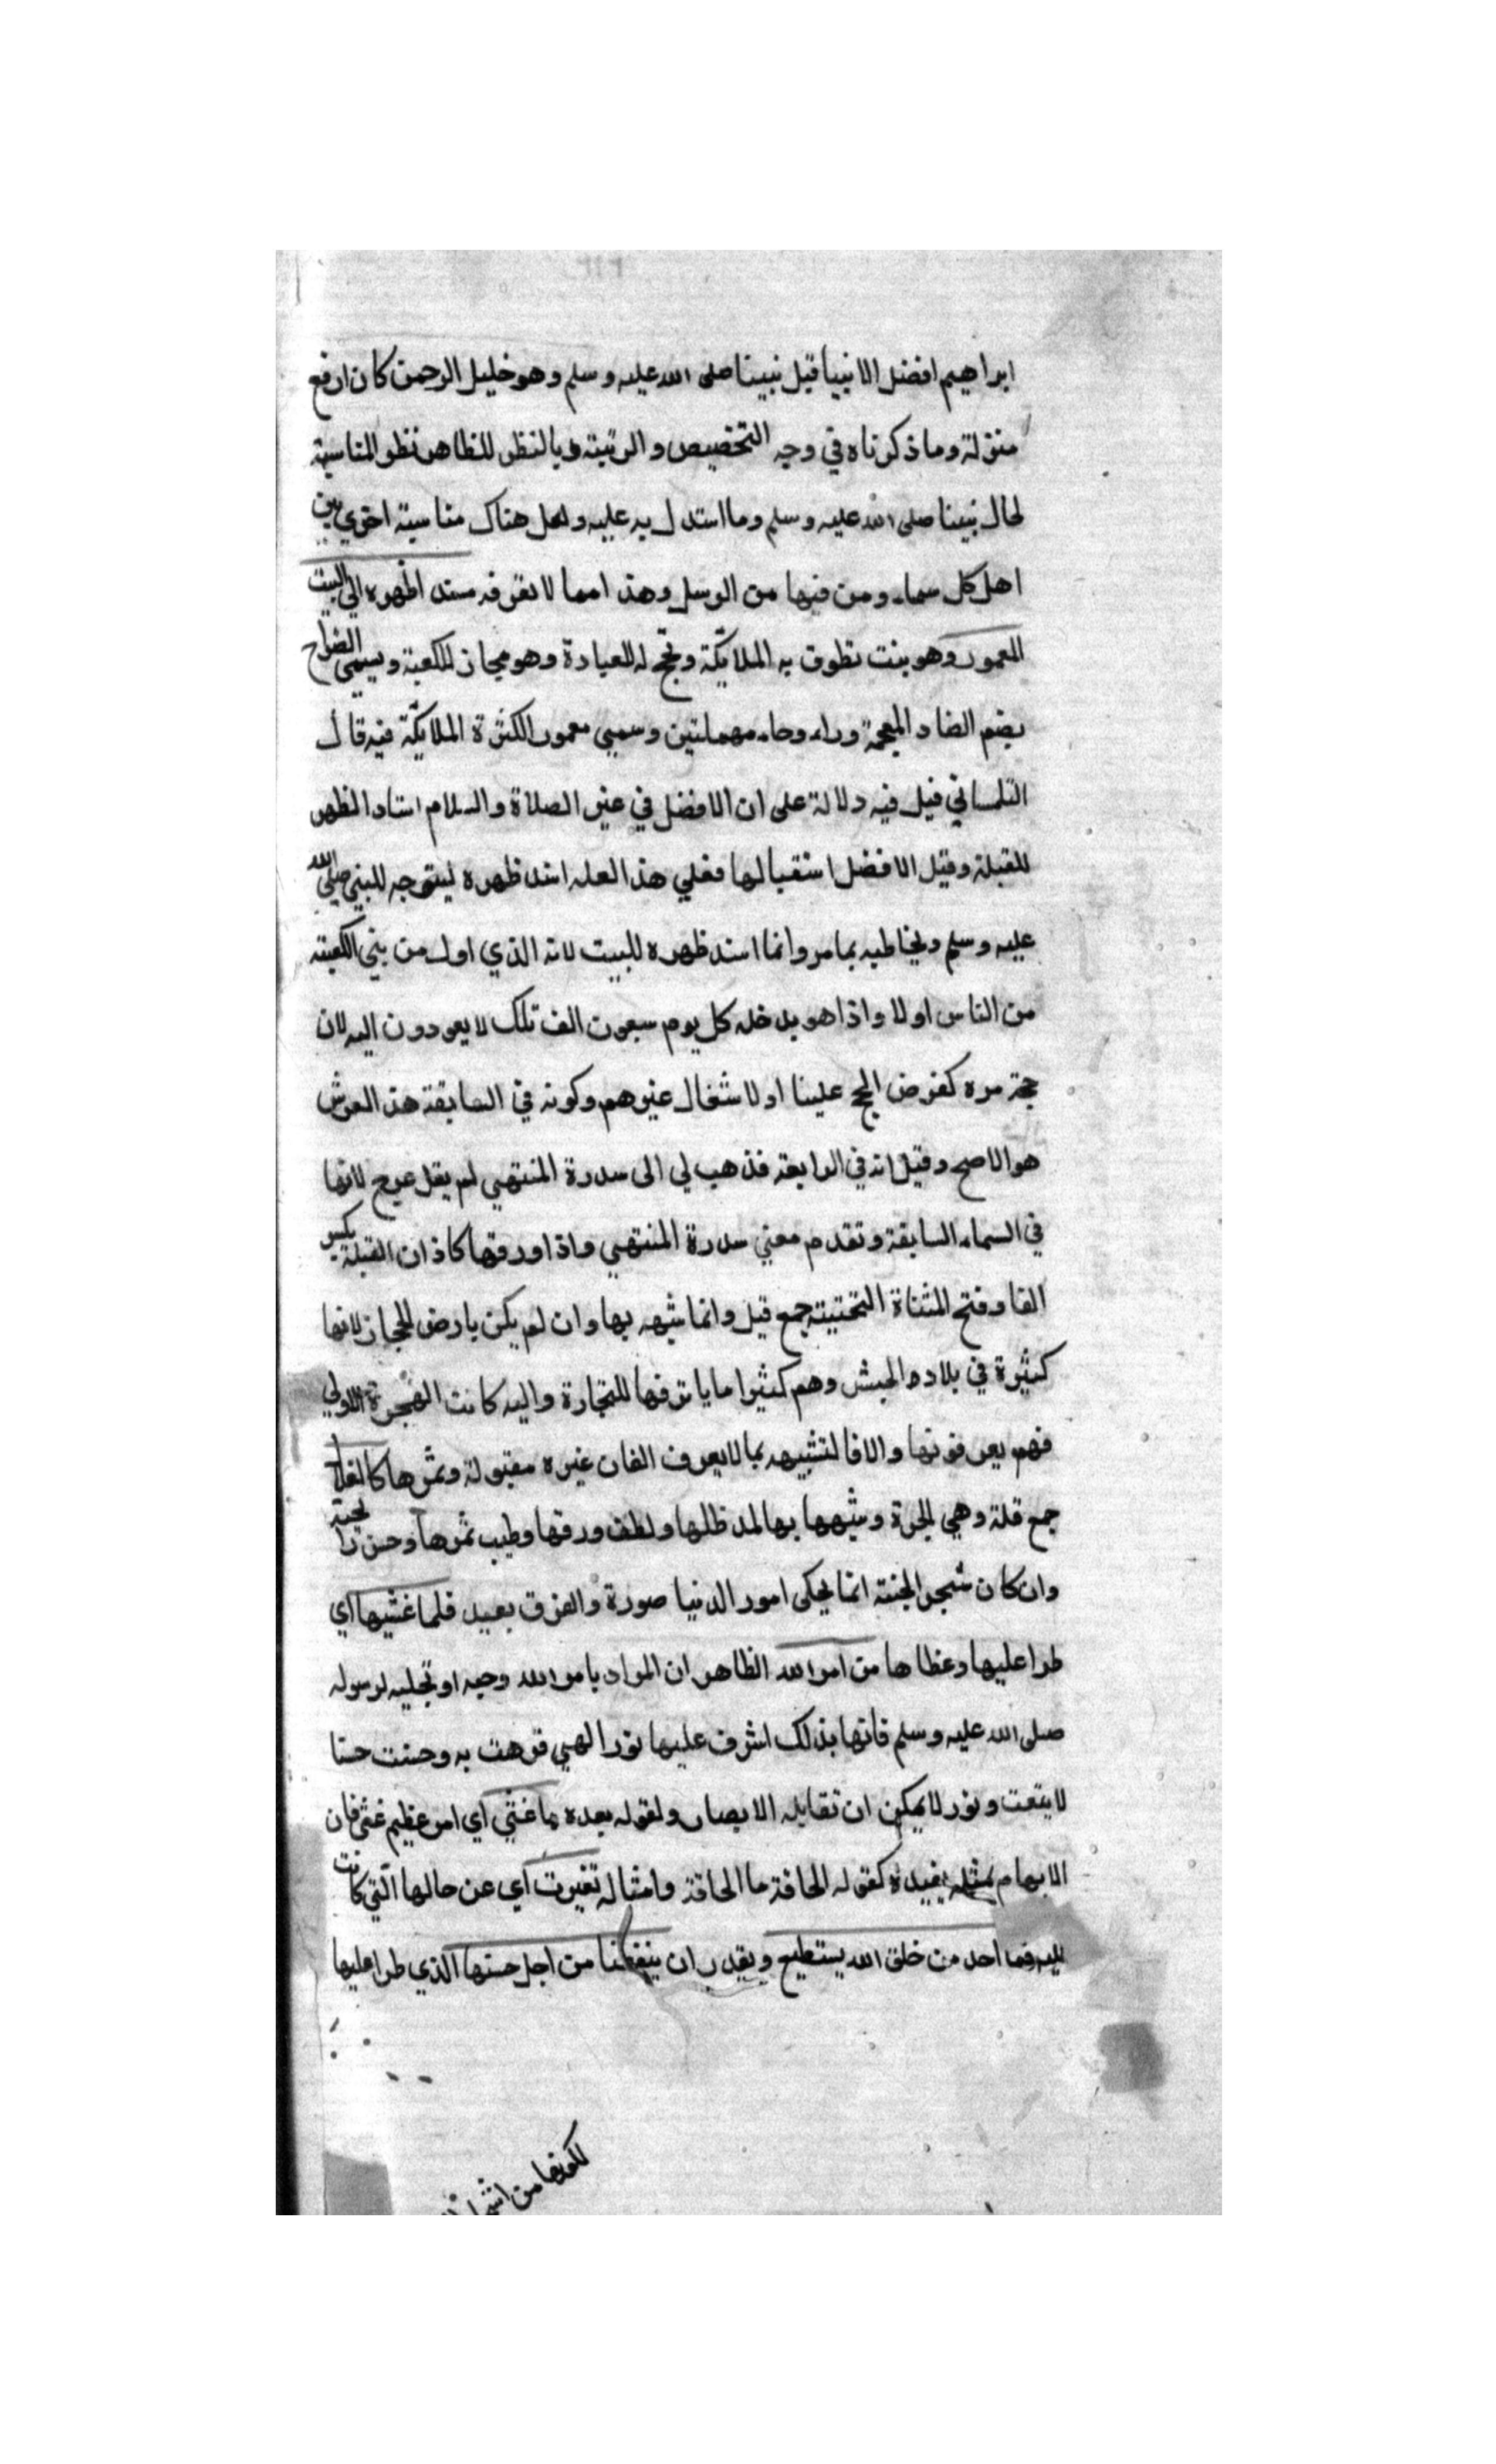 ابراهيم افضل الانبيا قبل نبينا صلى الله عليه وسلم وهو خليل الرحمن كان ارفع
منزلة وما ذكرناه في وجه التخصيص والرتبة وبالنظر للظاهر نظر المناسبة
لحال نبينا صلى الله عليه وسلم وما استدل به عليه ولعل هناك مناسبة اخري بين
اهل كل سماء ومن فيها من الرسل وهذا مما لا نعرفه مسندا ظهره الي البيت
المعمور وهو بيت تطوف به الملايكة وتحج له للعبادة وهو مجاز للكعبة ويسمي الضراح
بضم الضاد المعجمة وراء وحاء مهملتين وسمي معمور الكثرة الملايكة فيه قال
التلمساني قيل فيه دلالة على ان الافضل في غير الصلاة والسلام اسناد الظهر
للقبلة وقيل الافضل استقبالها فعلي هذا لعله اسند ظهره ليتوجه للنبي صلي الله
عليه وسلم ويخاطبه بما مر وانما اسند ظهره للبيت لانه الذي اول من بني الكعبة
من الناس اولا واذا هو يدخله كل يوم سبعون الف ملك لا يعودون اليه لان
حجة مره كفرض الحج علينا او لاشغال غيرهم وكونه في السابعة هذا العرش
هو الاصح وقيل انه في الرابعة فذهب لي الى سدرة المنتهي لم يقل عرج لانها
في السماء السابعة وتقدم معني سدرة المنتهي واذا ورقها كاذان الفيلة بكسر
الفا وفتح المثناة التحتية جمع فيل وانما شبهه بها وان لم يكن بارض الحجاز لانها
كثيرة في بلاد الحبش وهم كثيرا ما ياتوفها للتجارة واليه كانت الهجرة الاولي
فهم يعرفونها والا فالتشبيه بما لا يعرف الفان غيره مقبولة وثمرها كالقلال
جمع قلة وهي الجرة وشبهها بها لمد ظلها ولطف ورقها وطيب ثمرها وحسن رايحته
وان كان شجر الجنة انما يحكى امور الدنيا صورة والفرق بعيد فلما غشيها اي
طرا عليها وغطاها من امر الله الظاهر ان المراد بامر الله وحيه او تجليه لرسوله
صلى الله عليه وسلم فانها بذلك اشرف عليها نور الهي فزهت به وحسنت حسنا
لا ينعت ونور لا يمكن ان تقابله الابصار ولقوله بعده ما غشي اي امر عظيم غشي فان
الابهام بمثله يفيده كقوله الحاقة ما الحاقة وامثاله تغيرت اي عن حالها التي كانت
عليه فما احد من خلق الله يستطيع ويقدر ان ينعتها من اجل حسنها الذي طرا عليها
لكونها من